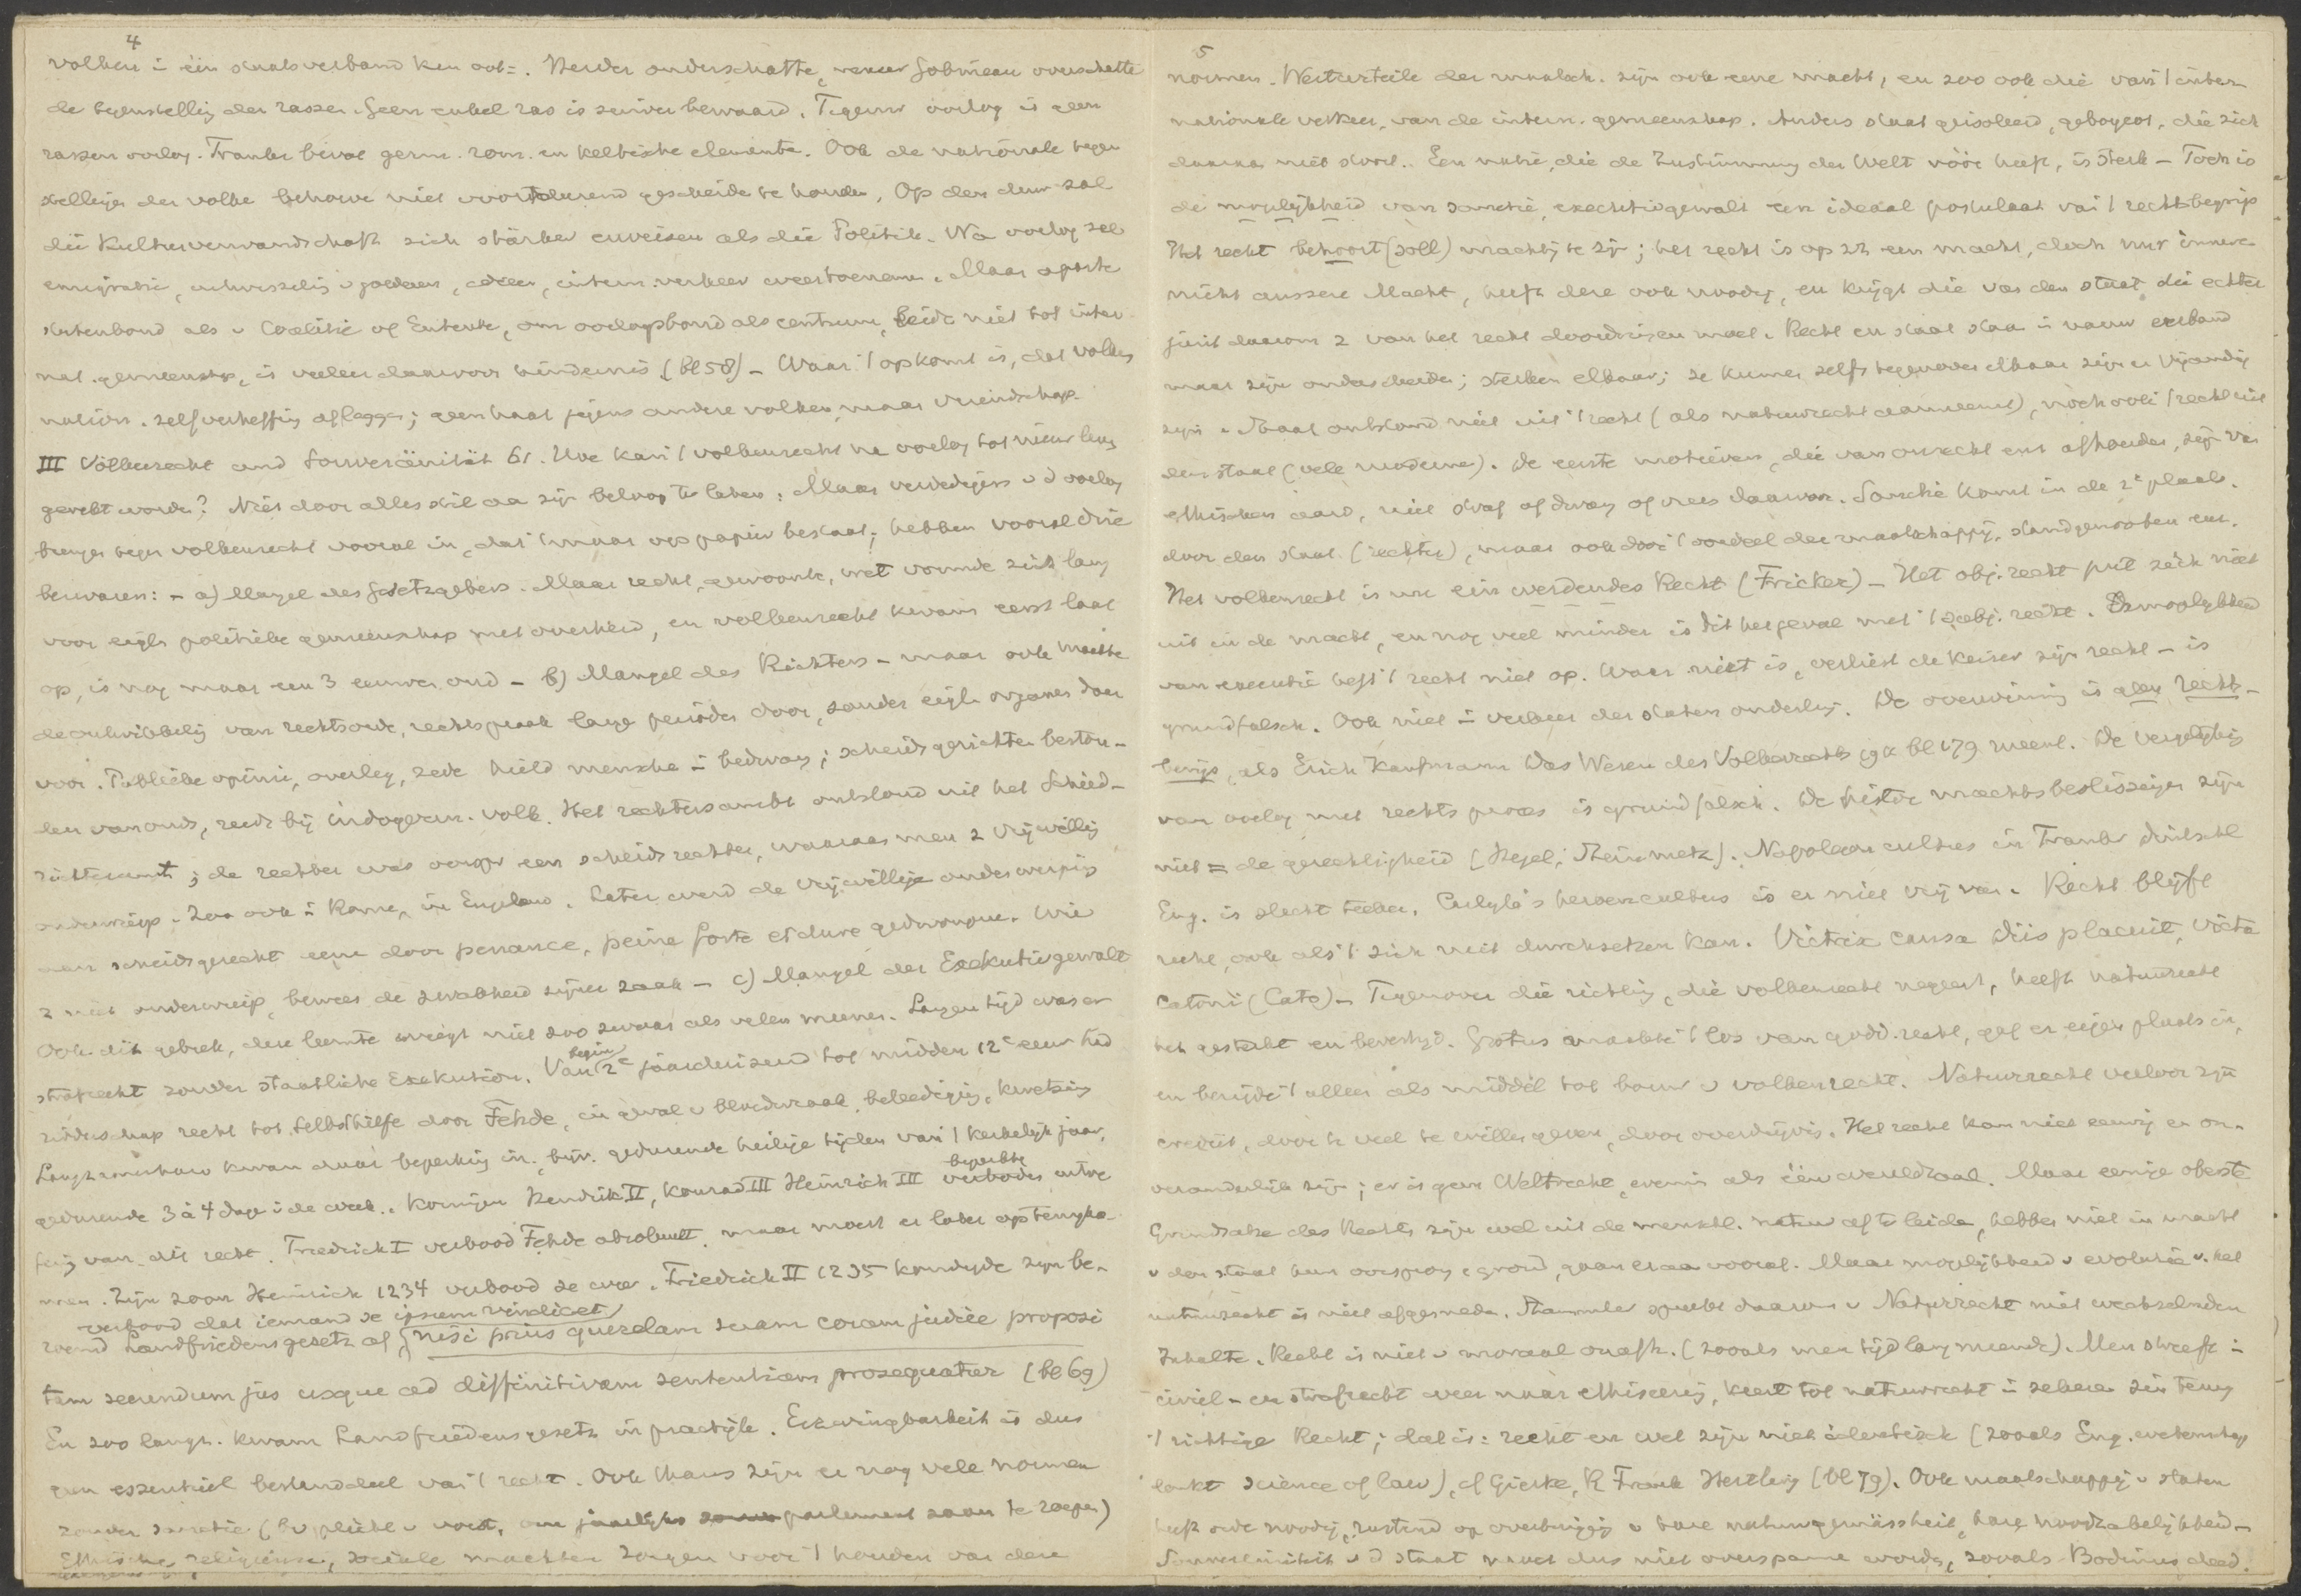 4
volken in één staatsverband kan ook =. Herder onderschatte, maar Gobineau overschatte
de tegenstelling der rassen. Geen enkel ras is zuiver bewaard. Tegenw. oorlog is geen
rassen oorlog. Frankr. bevat germ. rom. en keltische elementen. Ook de nationale tegen
stellingen der volken behoeven niet voortdurend gescheiden te houden. Op den duur zal
die Kulturverwandschaft sich stärker erweisen als die Politik. Na oorlog zal
emigratie, uitwisseling v goederen, ideeen, intern. verkeer weer toenemen. Maar aparte
statenbond als v Coalitie of Entente, om oorlogsbond als centrum, leidt niet tot inter-
nat. gemeenschap, is veeleer daarvoor hindernis (bl 58) – Waar 't op komt is, dat volken
nation. zelfverheffing afleggen; geen haat jegens andere volken, maar vriendschap.
III Völkerrecht und Souveränität 61. Hoe kan 't volkenrecht na oorlog tot nieuw leven
gewekt worden? Niet door alles stil aan zijn beloop te laten. Maar verdedigers v d oorlog
brengen tegen volkenrecht vooral in, dat 't maar op papier bestaat; hebben vooral drie
bezwaren: – a) Mangel des Gesetzgebers. Maar recht, gewoonte, wet vormde zich lang
voor eigl. politieke gemeenschap met overheid, en volkenrecht kwam eerst laat
op, is nog maar een 3 eeuwen oud – b) Mangel des Richters – maar ook maakte
de ontwikkeling van rechtsorde, rechtspraak lange perioden door, zonder eigl. organen daar
voor. Publieke opinie, overleg, zede hield menschen in bedwang; scheidsgerichten beston-
den van ouds, reeds bij indogerm. volk. Het rechtersambt ontstond uit het Schied-
richteramt; de rechter was oorspr een scheidsrechter, waaraan men z vrijwillig
onderwierp. Zoo ook in Rome, in Engeland. Later werd de vrijwillige onderwerping
aan scheidsgerecht een door penance, peine forte et dure gedwongene. Wie
z niet onderwierp, bewees de zwakheid zijner zaak – c) Mangel der Exekutivgewalt
Ook dit gebrek, deze leemte weegt niet zoo zwaar als velen meenen. Langen tijd was er
strafrecht zonder staatliche Exekution. Van begin 2e jaarduizend tot midden 12e eeuw had
ridderschap recht tot Selbsthilfe door Fehde, in geval v bloedwraak, beleediging, kwetsing
Langzamerhand kwam daar beperking in, bijv. gedurende heilige tijden van 't kerkelijk jaar,
gedurende 3 à 4 dagen in de week. Koningen Hendrik II, Konrad III Heinrich III verboden beperkte uitoe
fening van dit recht. Friedrich I verbood Fehde absoluut, maar moest er later op terugko-
men. Zijn zoon Heinrich 1234 verbood ze weer. Friedrich II 1235 kondigde zijn be-
verbood dat iemand se ipsum vindicet
roemd Landfriedensgesetz af, nisi prius querelam suam coram judice proposi
tam secundum jus usque ad diffinitivam sententiam prosequatur (bl 69)
En zoo langz. kwam Landfriedensgesetz in practijk. Erzwingbarkeit is dus
geen essentieel bestanddeel van 't recht. Ook thans zijn er nog vele normen
zonder sanctie (bv plicht v vorst, om jaarlijks parlement saam te roepen)
Ethische, religieuse, sociale machten zorgen voor 't houden van deze
5
normen. Werturteile der maatsch. zijn ook eene macht, en zoo ook die van 't inter-
nationale verkeer, van de intern. gemeenschap. Anders staat geisoleerd, geboycot, die zich
daaraan niet stoort. Een natie, die de Zustimmung der Welt vóór heeft, is sterk – Toch is
de mogelijkheid van sanctie, executiegewalt een ideaal postulaat van 't rechtsbegrip
Het recht behoort (soll) machtig te zijn; het recht is op zh een macht, doch nur innere
nicht äussere Macht, heeft deze ook noodig, en krijgt die van den staat, die echter
juist daarom z van het recht doordringen moet. Recht en staat staan in nauw verband
maar zijn onderscheiden; sterken elkaar; ze kunnen zelfs tegenover elkaar zijn en vijandig
zijn. Staat ontstond niet uit 't recht (als natuurrecht aanneemt), noch ook 't recht uit
den staat (vele moderne). De eerste motieven, die van onrecht ens afhouden, zijn van
ethischen aard, niet straf of dwang of vrees daarvoor. Sanctie komt in de 2e plaats.
door den staat (rechter), maar ook door 't oordeel der maatschappij, standgenooten enz.
Het volkenrecht is nu ein werdendes Recht (Fricker) – Het obj. recht put zich niet
uit in de macht, en nog veel minder is dit het geval met 't subj. recht. Onmogelijkheid
van executie heft 't recht niet op. Waar niet is, verliest de keizer zijn recht – is
grundfalsch. Ook niet in verkeer der staten onderling. De overwinning is geen rechts-
bewijs, als Erich Kaufmann Das Wesen des Völkerrechts 1911 bl 179 meent. De vergelijking
van oorlog met rechts proces is grundfalsch. De histor. machtsbeslissingen zijn
niet = de gerechtigheid (Hegel; Steinmetz). Napoleon cultus in Frankr Duitschl
Eng. is slecht teeken. Carlyle's heroencultus is er niet vrij van. Recht blijft
recht, ook als 't zich niet durchsetzen kan. Victrix causa Diis placuit, victa
Catoni (Cato) – Tegenover die richting, die volkenrecht negeert, heeft natuurrecht
het gesterkt en bevestigd. Grotius maakte 't los van godd. recht, gaf er eigen plaats in,
en benijde 't alleen als middel tot bouw v volkenrecht. Natuurrecht verloor zijn
crediet, door te veel te willen geven, door overdrijving. Het recht kan niet eeuwig en on-
veranderlijk zijn; er is geen Weltrecht, evenmin als één wereldtaal. Maar eenige oberste
Grundsätze des Rechts zijn wel uit de menschl. natuur af te leiden, hebben niet in macht
v den staat hun oorsprong e grond, gaan eraan vooraf. Maar mogelijkheid v evolutie v. het
natuurrecht is niet afgesneden. Stammler spreekt daarom v Naturrecht mit wechselndem
Inhalte. Recht is niet v moraal onafh. (zooals men tijd lang meende). Men streeft in
civiel- en strafrecht weer naar ethiseering, keert tot natuurrecht in zekeren zin terug
't richtige Recht; dat is: recht en wet zijn niet identisch (zooals Eng. wetenschap
denkt science of law), cf Gierke, R Frank Hertling (bl 79). Ook maatschappij v staten
heeft orde noodig, rustend op overtuiging v hare naturgemässheit, hare noodzakelijkheid –
Souvereiniteit v d staat moet dus niet overspannen worden, zooals Bodinus deed.